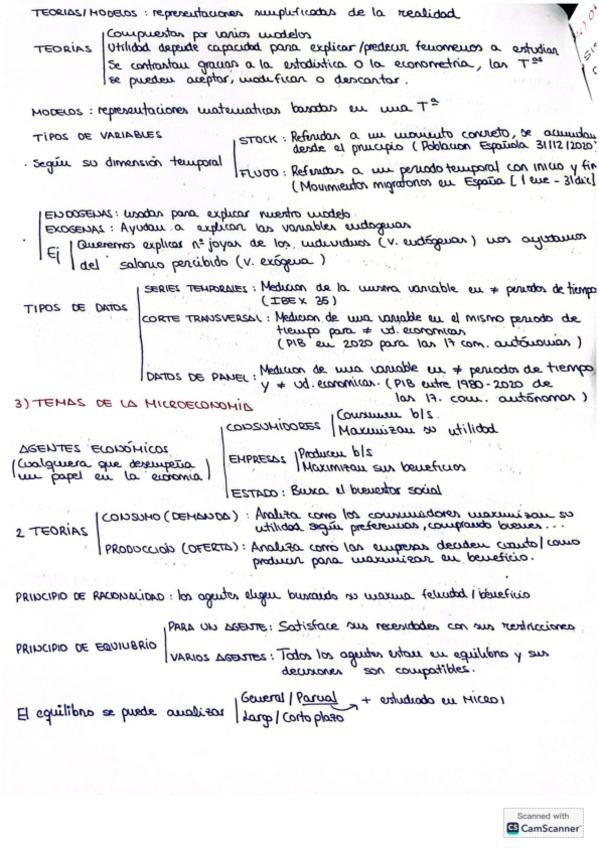 TEORÍAS/MODELOS: representaciones simplificadas de la realidad
Compuestas por varios modelos
TEORÍAS Utilidad depende capacidad para explicar/predecir fenómenos a estudiar
Se contrastan gracias a la estadística o la econometría, las Tªs
se pueden aceptar, modifican o descartar.
MODELOS: representaciones matemáticas basadas en una Tª
TIPOS DE VARIABLES
STOCK: Referidas a un momento concreto, se acumulan
desde el principio (Población Española 31/12/2020)
· Según su dimensión temporal
FLUJO: Referidas a un periodo temporal con inicio y fin
(Movimientos migratorios en España [1 ene - 31 dic]
ENDÓGENAS: usadas para explicar nuestro modelo
· EXÓGENAS: Ayudan a explicar las variables endógenas
Ej Queremos explicar nº joyas de los individuos (v. endógenas) nos ayudamos
del salario percibido (v. exógena)
SERIES TEMPORALES: Medición de la misma variable en ≠ periodos de tiempo
(IBEX 35)
TIPOS DE DATOS CORTE TRANSVERSAL: Medición de una variable en el mismo periodo de
tiempo para ≠ ud. económicas
(PIB en 2020 para las 17 com. autónomas)
DATOS DE PANEL: Medición de una variable en ≠ periodos de tiempo
y ≠ ud. económicas. (PIB entre 1980-2020 de
las 17 com. autónomas)
3) TEMAS DE LA MICROECONOMÍA
CONSUMIDORES Consumen b/s
Maximizan su utilidad
AGENTES ECONÓMICOS
(Cualquiera que desempeña
un papel en la economía)
EMPRESAS Producen b/s
Maximizan sus beneficios
ESTADO: Busca el bienestar social
2 TEORÍAS CONSUMO (DEMANDA): Analiza como los consumidores maximizan su
utilidad según preferencias, comprando bienes...
PRODUCCIÓN (OFERTA): Analiza como las empresas deciden cuanto/como
producir para maximizar su beneficio.
PRINCIPIO DE RACIONALIDAD: los agentes eligen buscando su máxima felicidad/beneficio
PRINCIPIO DE EQUILIBRIO PARA UN AGENTE: Satisface sus necesidades con sus restricciones
VARIOS AGENTES: Todos los agentes están en equilibrio y sus
decisiones son compatibles.
El equilibrio se puede analizar General/Parcial + estudiado en MICRO I
Largo/Corto plazo
Scanned with
CS CamScanner